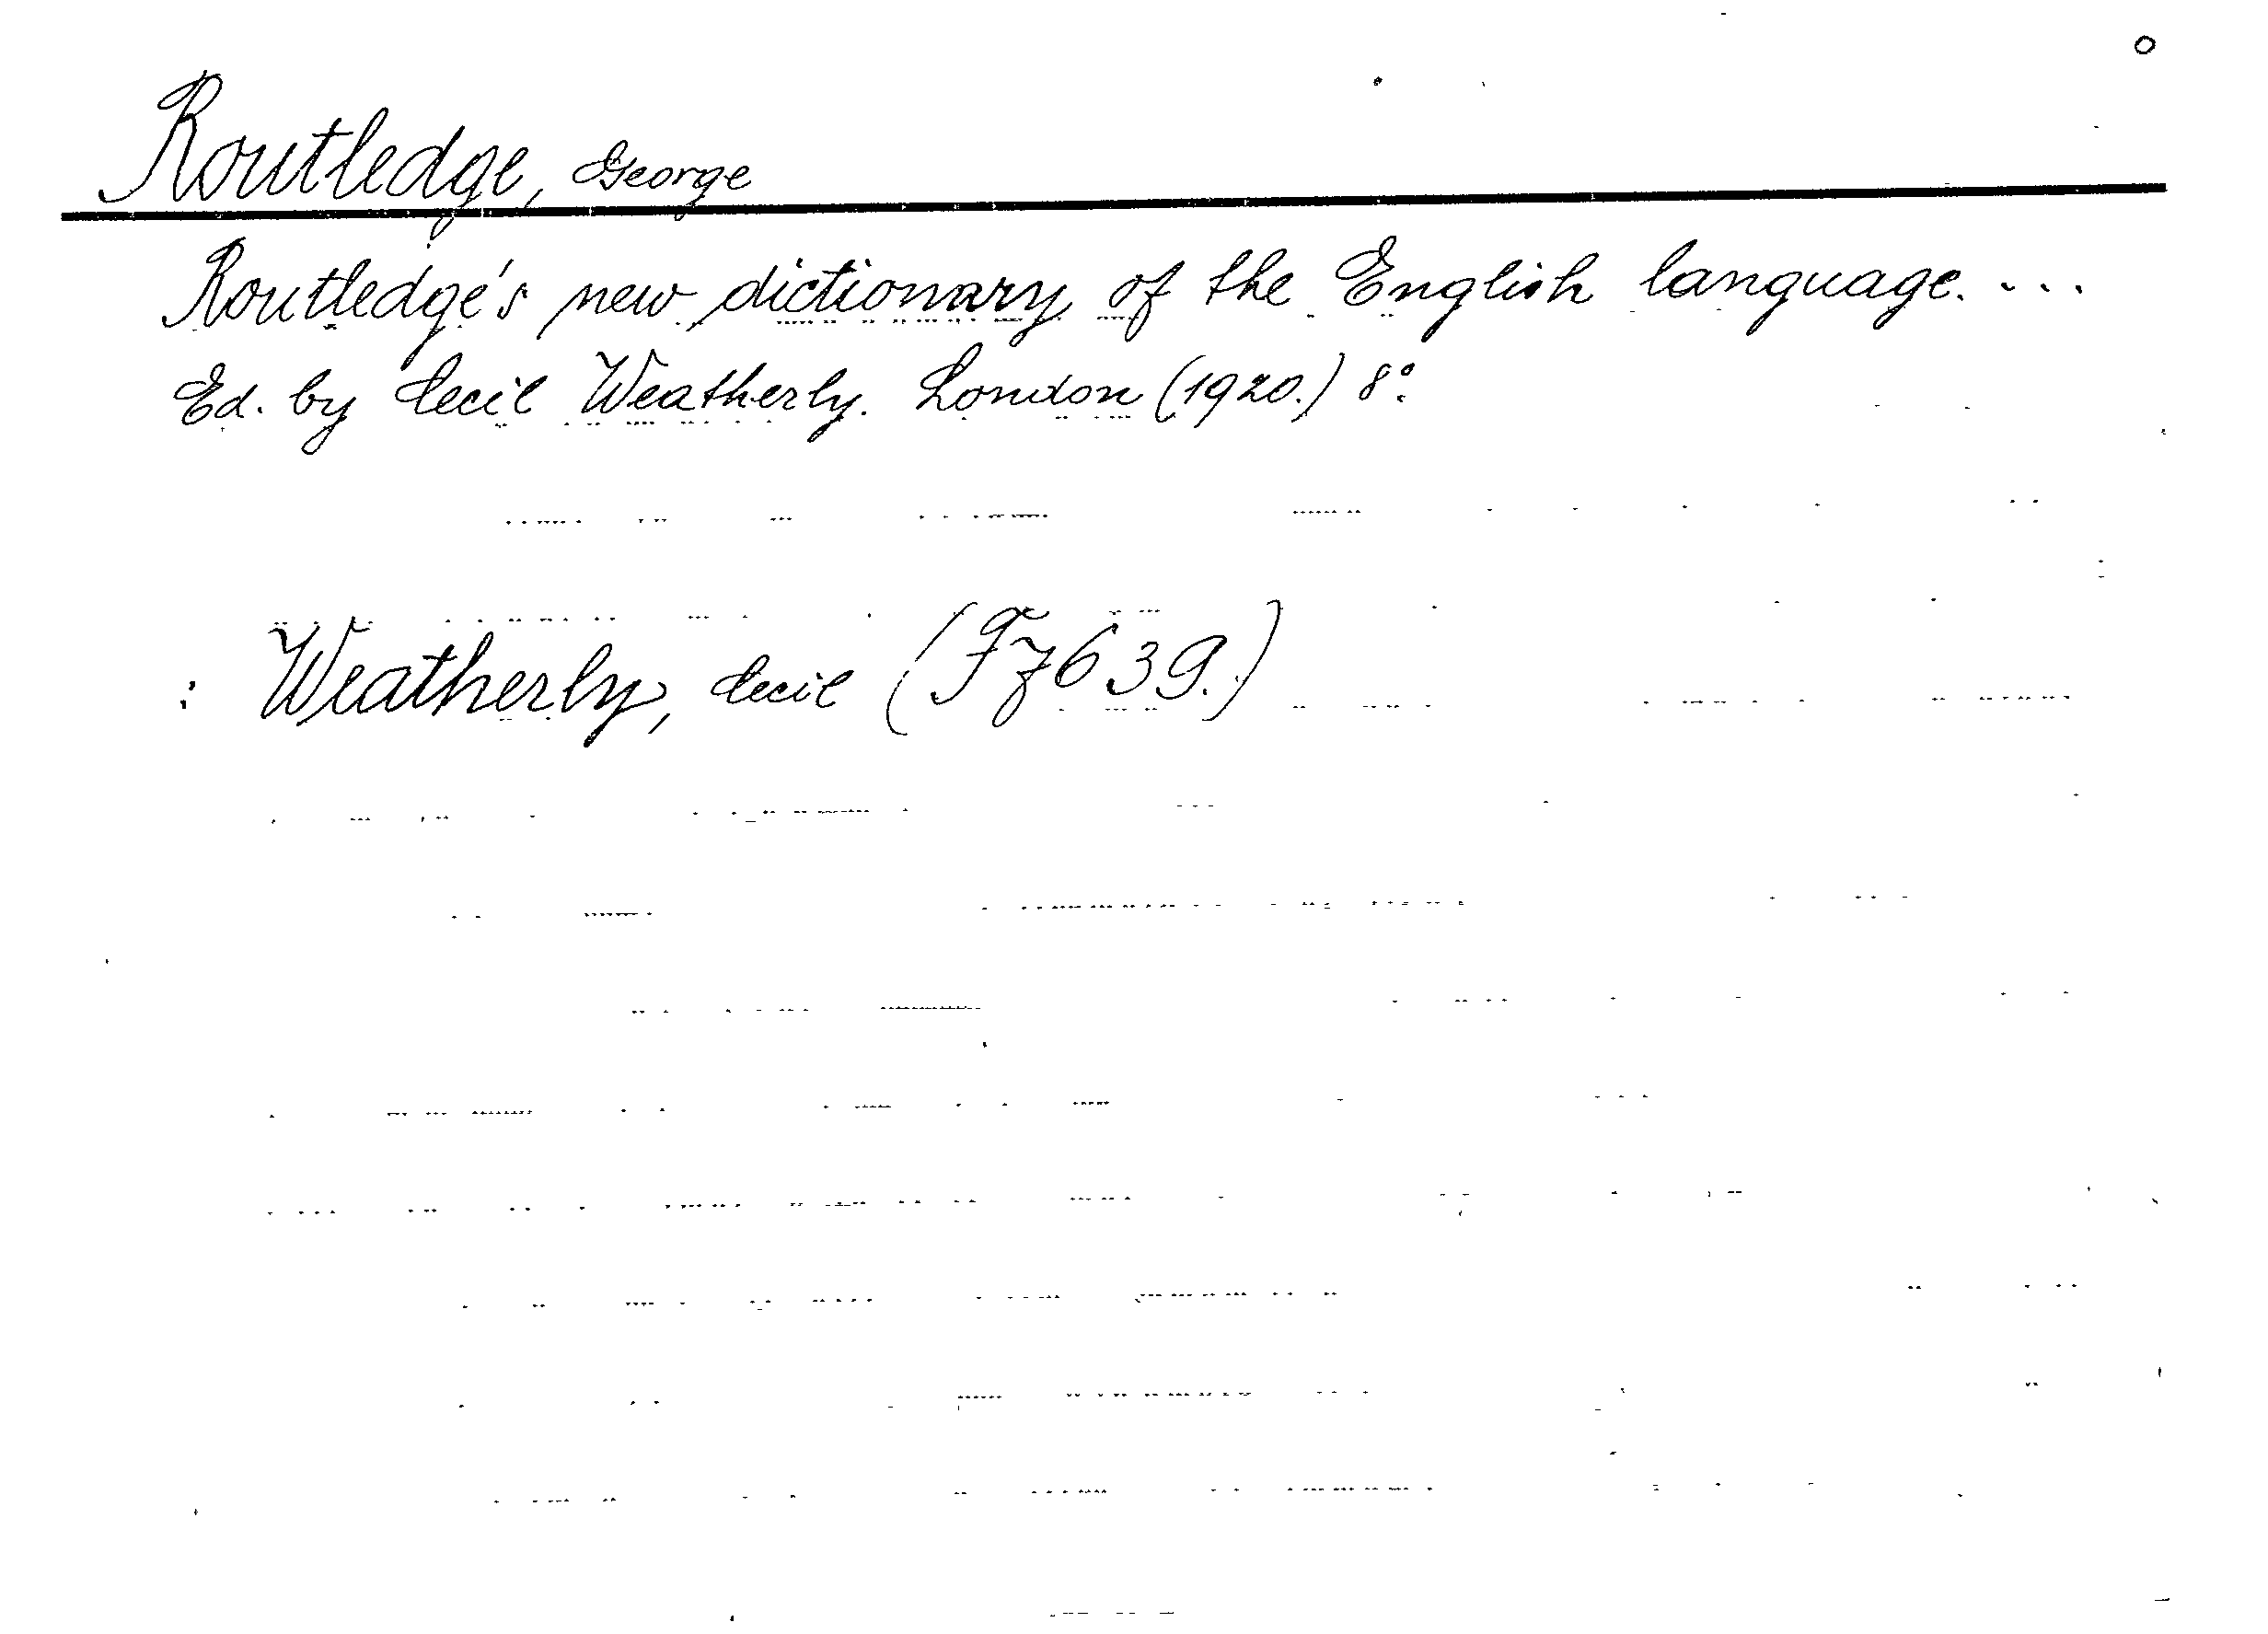 Routledge, George
Routledge's new dictionary of the English language. ...
Ed. by Cecil Weatherly. London (1920.) 8°.
: Weatherly, Cecil (F7639.)